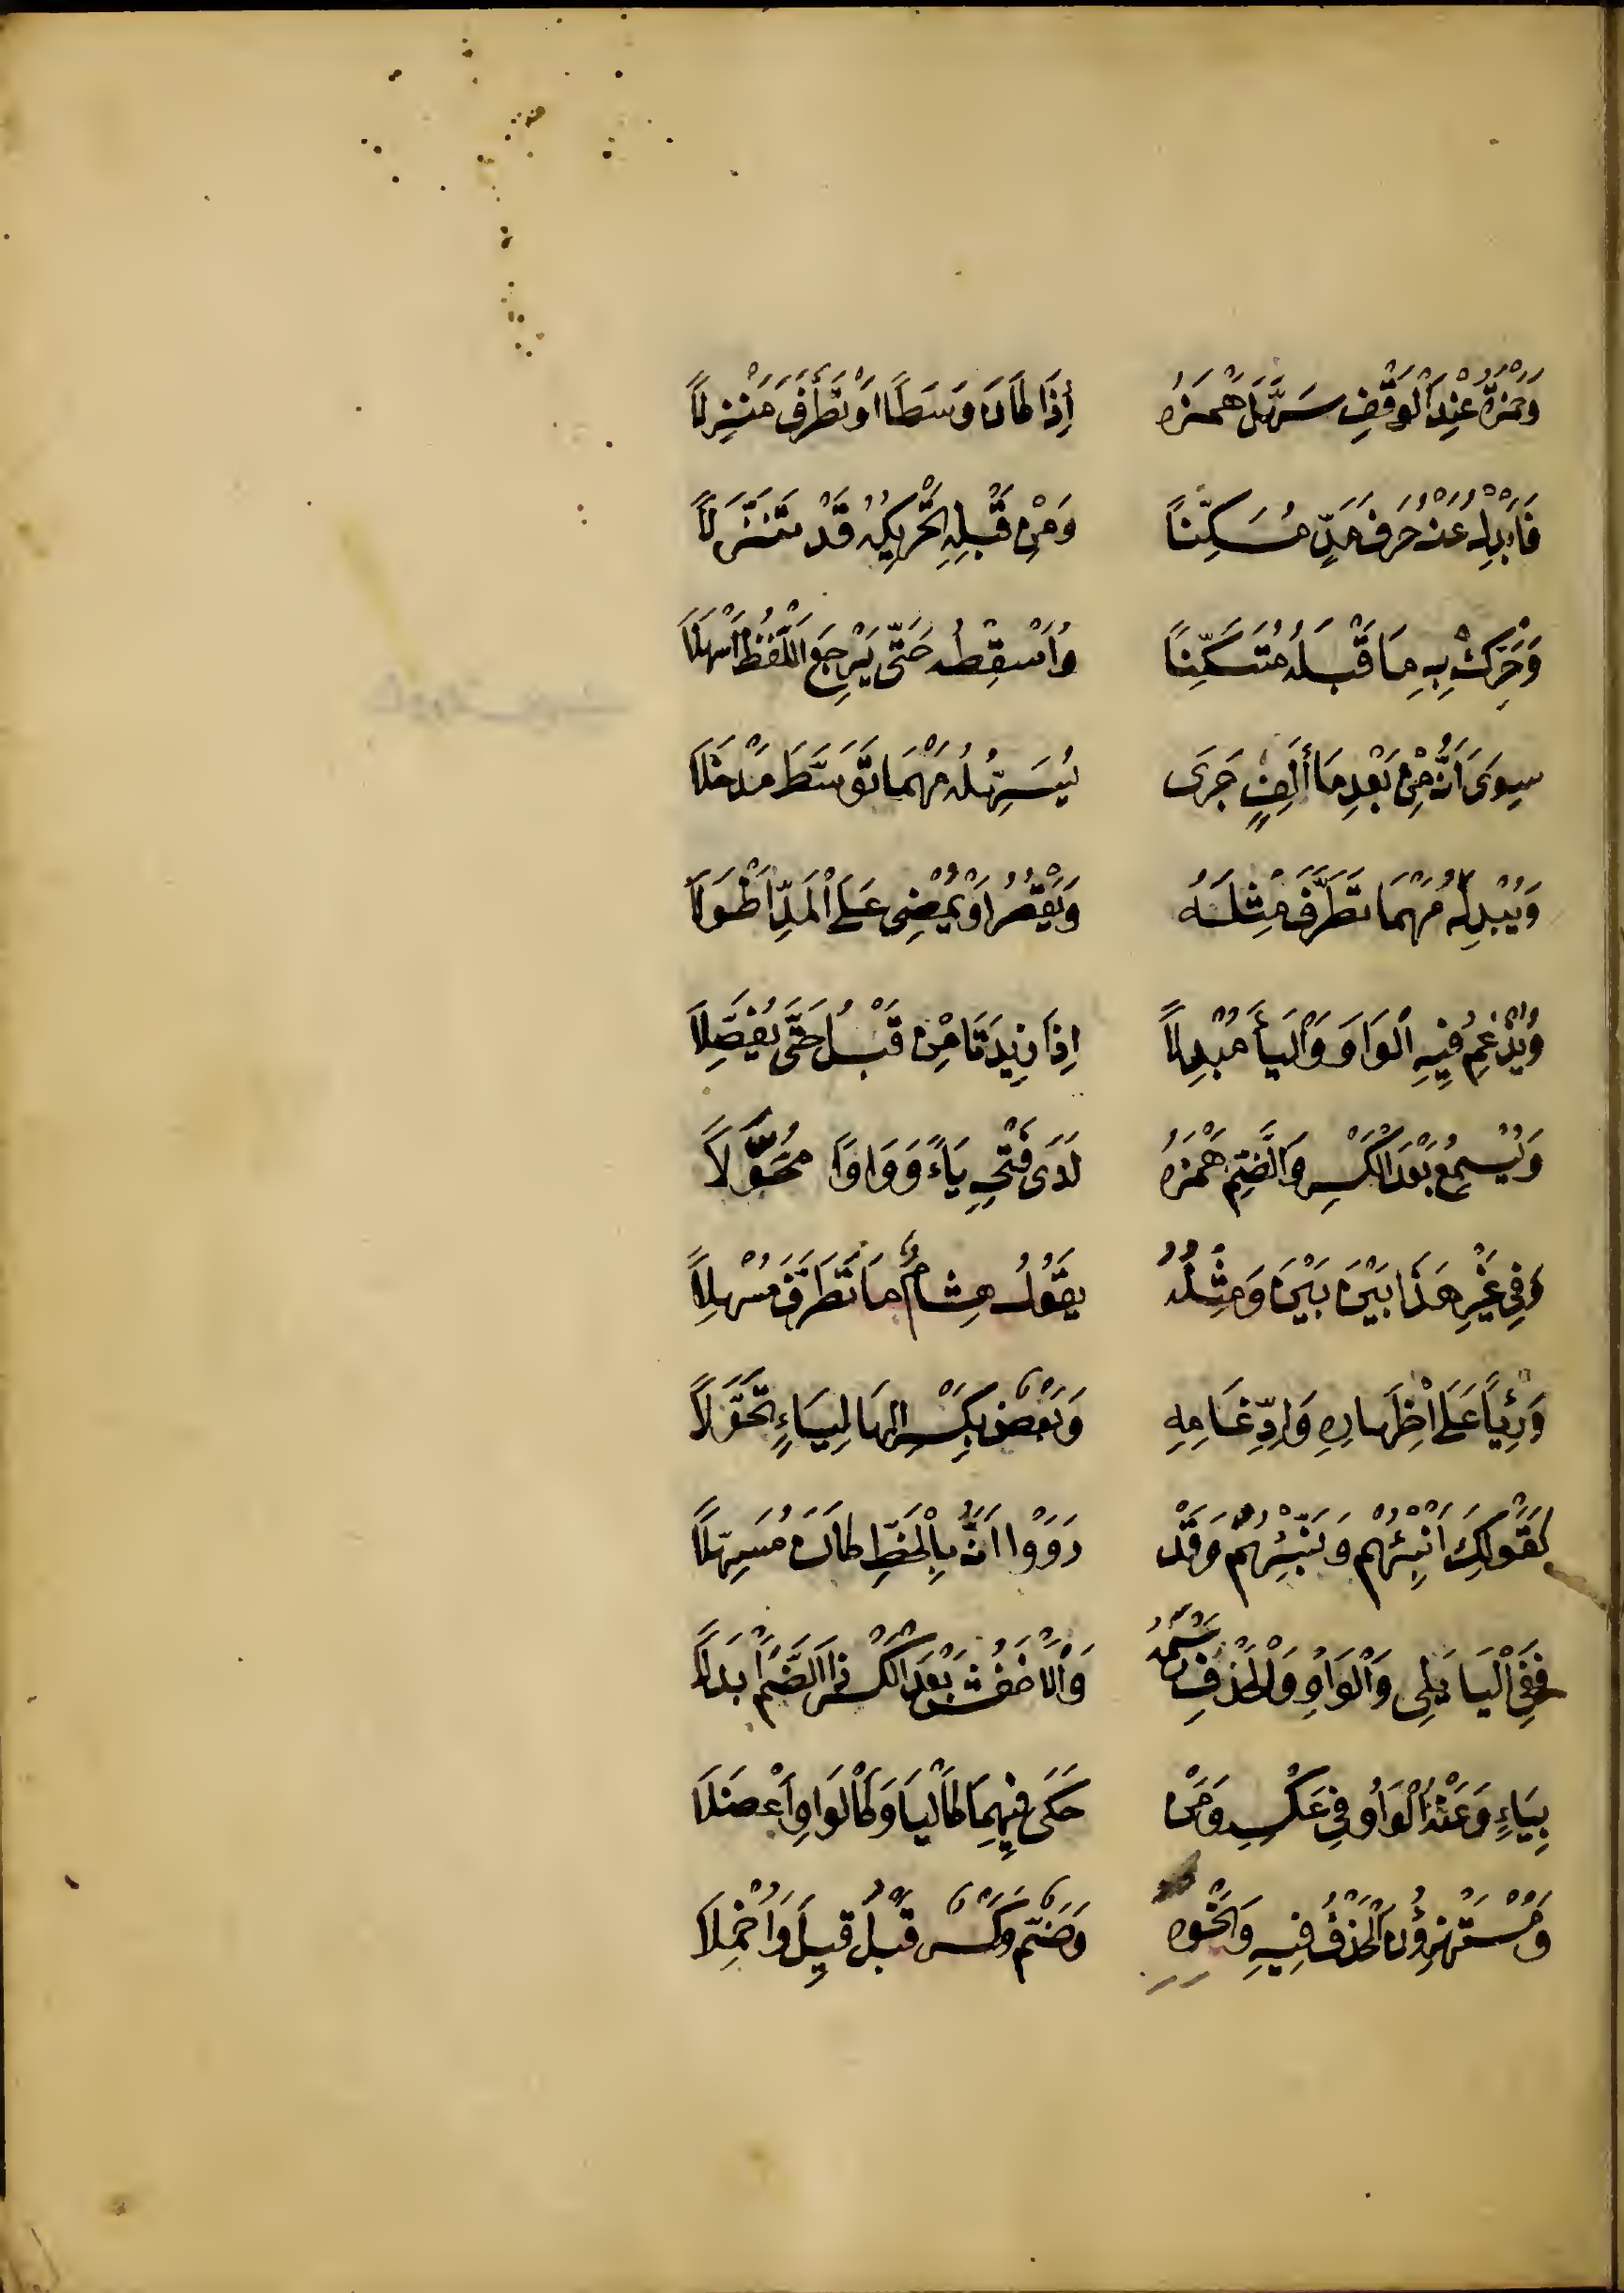 وَحَمْزَةُ عِنْدَ الْوَقْفِ سَهَّلَ هَمْزَهُ إِذَا كَانَ وَسْطًا اَوْ تَطَرَّفَ مَنْزِلَاً
فَأَبْدِلْهُ عَنْهُ حَرْفَ مَدٍّ مُسَكِّنًا وَمِنْ قَبْلِهِ تَحْرِيكُهُ قَدْ تَنَزَّلَاً
وَحَرِّكْ بِهِ مَا قَبْلَهُ مُتَسَكِّنًا وَأَسْقِطْهُ حَتَّى يَرْجِعَ اللَّفْظُ أَسْهَلَا
سِوَى اَنَّهُ مِنْ بَعْدِ مَا أَلِفٍ جَرَى يُسَهِّلُهُ مَهْمَا تَوَسَّطَ مَدْخَلَا
وَيُبْدِلُهُ مَهْمَا تَطَرَّفَ مِثْلَهُ وَيَقْصُرُ اَوْ يَمْضِى عَلَى الْمَدِّ اَطْوَلَا
وَيُدْغِمُ فِيهِ الْوَاوَ وَالْيَأَ مُبْدِلاً اِذَا زِيدَتَا مِنْ قَبْلُ حَتَّى يُفَصَّلَا
وَيُسْمِعُ بَعْدَ الْكَسْرِ وَالضَّمِّ هَمْزَهُ لَدَى فَتْحِهِ يَاءً وَوَاوًا مُحَوَّلَاً
وَفِى غَيْرِ هَذَا بَيْنَ بَيْنَ وَمِثْلُهُ يَقُولُ هِشَامٌ مَا تَطَرَّفَ مُسْهِلاً
وَرِئْيًا عَلَى اِظْهَارِهِ وَادِّغَامِهِ وَبَعْضٌ بِكَسْرِ الْهَا لِيَاءٍ تَحَوَّلَاً
كَقَوْلِكَ اَنْبِئْهُمْ وَنَبِّئْهُمْ وَقَدْ رَوَوْا اَنَّهُ بِالْخَطِّ كَانَ مُسَهِّلاً
فَفِى الْيَا يَلِى وَالْوَاوِ وَالْحَذْفِ رَسْمَهُ وَالْاَخْفَشُ بَعْدَ الْكَسْرِ ذَا الضَّمِّ اَبْدَلَاً
بِيَاءٍ وَعَنْهُ الْوَاوُ فِى عَكْسِهِ وَمَنْ حَكَى فِيهِمَا كَالْيَا وَكَالْوَاوِ اَعْضَلَا
وَمُسْتَهْزِؤُنَ الْحَذْفُ فِيهِ وَنَحْوِهِ وَضَمٌّ وَكَسْرٌ قَبْلُ قِيلَ وَاُخْمِلَا